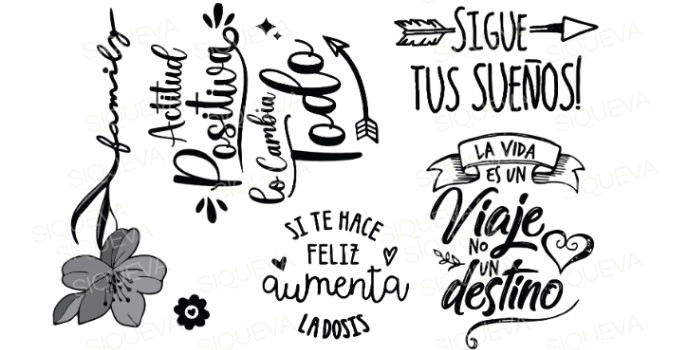 family
Actitud
Positiva
lo Cambia
Todo
SIGUE
TUS SUEÑOS!
SI TE HACE
FELIZ
aumenta
LA DOSIS
LA VIDA
ES UN
Viaje
NO
UN
destino
SIQUEVA